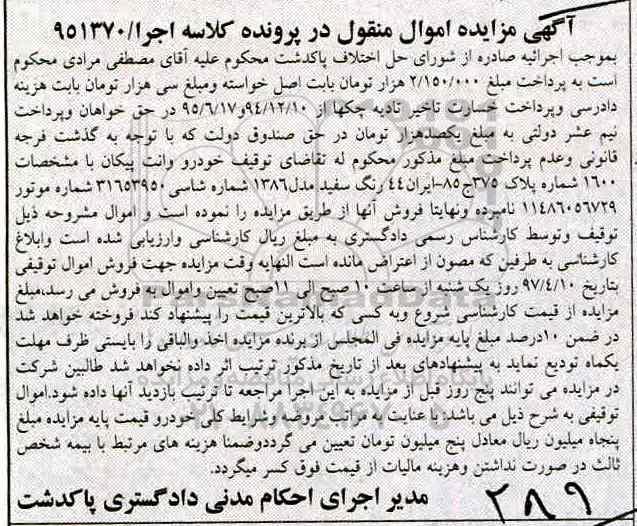 آگهی مزایده اموال منقول در پرونده کلاسه اجرا/۹۵۱۳۷۰
بموجب اجرائیه صادره از شورای حل اختلاف پاکدشت محکوم علیه آقای مصطفی مرادی محکوم
است به پرداخت مبلغ ۲/۱۵۰/۰۰۰ هزار تومان بابت اصل خواسته ومبلغ سی هزار تومان بابت هزینه
دادرسی وپرداخت خسارت تاخیر تادیه چکها از ۹۴/۱۲/۱۰و۹۵/۶/۱۷ در حق خواهان وپرداخت
نیم عشر دولتی به مبلغ یکصدهزار تومان در حق صندوق دولت که با توجه به گذشت فرجه
قانونی وعدم پرداخت مبلغ مذکور محکوم له تقاضای توقیف خودرو وانت پیکان با مشخصات
۱۶۰۰ شماره پلاک ۳۷۵ج۸۵-ایران۴۴ رنگ سفید مدل۱۳۸۶ شماره شاسی۳۱۶۵۳۹۵۰ شماره موتور
۱۱۴۸۶۰۵۶۷۲۹ نامبرده ونهایتا فروش آنها از طریق مزایده را نموده است و اموال مشروحه ذیل
توقیف وتوسط کارشناس رسمی دادگستری به مبلغ ریال کارشناسی وارزیابی شده است وابلاغ
کارشناسی به طرفین که مصون از اعتراض مانده است النهایه وقت مزایده جهت فروش اموال توقیفی
بتاریخ ۹۷/۴/۱۰ روز یک شنبه از ساعت ۱۰ صبح الی ۱۱صبح تعیین واموال به فروش می رسد،مبلغ
مزایده از قیمت کارشناسی شروع وبه کسی که بالاترین قیمت را پیشنهاد کند فروخته خواهد شد
در ضمن ۱۰درصد مبلغ پایه مزایده فی المجلس از برنده مزایده اخذ والباقی را بایستی ظرف مهلت
یکماه تودیع نماید به پیشنهادهای بعد از تاریخ مذکور ترتیب اثر داده نخواهد شد طالبین شرکت
در مزایده می توانند پنج روز قبل از مزایده به این اجرا مراجعه تا ترتیب بازدید آنها داده شود.اموال
توقیفی به شرح ذیل می باشد: با عنایت به مراتب معروضه وشرایط کلی خودرو قیمت پایه مزایده مبلغ
پنجاه میلیون ریال معادل پنج میلیون تومان تعیین می گرددوضمنا هزینه های مرتبط با بیمه شخص
ثالث در صورت نداشتن وهزینه مالیات از قیمت فوق کسر میگردد.
مدیر اجرای احکام مدنی دادگستری پاکدشت
۲۸۹
ParsNamadData